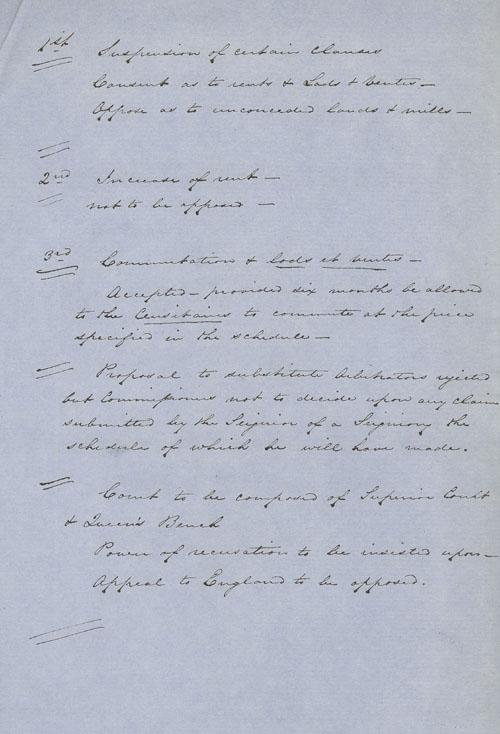 1st Suspension of certain Clauses
Consent as to rents & Lods & Ventes —
Oppose as to unconceded lands & mills —
2nd Increase of rent —
not to be opposed —
3rd Commutation & lods et ventes —
Accepted — provided six months be allowed
to the Censitaires to commute at the price
specified in the schedule —
Proposal to substitute Arbitrators rejected
but Commissioners not to decide upon any claim
submitted by the Seignior of a Seigniory the
schedule of which he will have made.
Court to be composed of Superior Court
& Queen's Bench
Power of recusation to be insisted upon —
Appeal to England to be opposed.